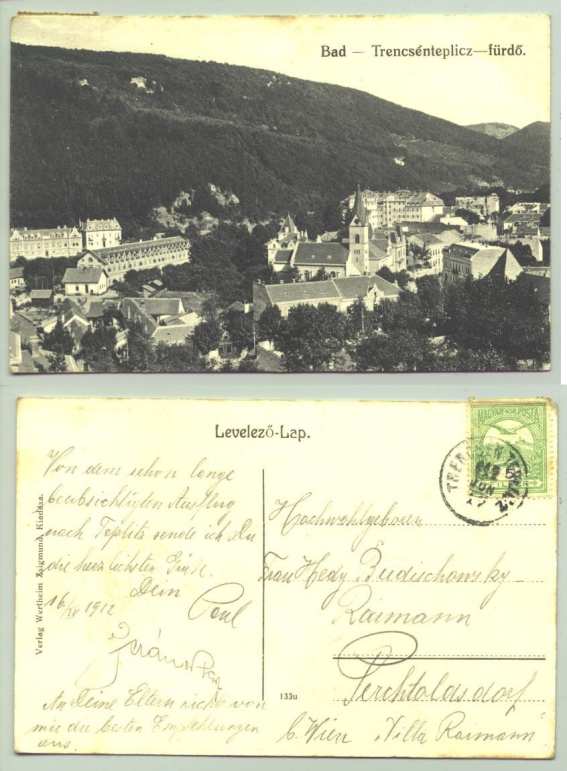 Bad — Trencsénteplicz—fürdő.
Levelező-Lap.
MAGYAR KIR. POSTA
Verlag Wertheim Zsigmond, Kiadása.
Von dem schon lange
beabsichtigten Ausflug
nach Teplitz sende ich Du
die herzlichsten Grüße.
Dein
16/ 1912 Paul
An Deine Eltern richte von
mir die besten Empfehlungen
aus.
133u
Hochwohlgeboren
Frau Hedy Budischowsky
Raimann
Perchtoldsdorf
b. Wien „Villa Raimann"